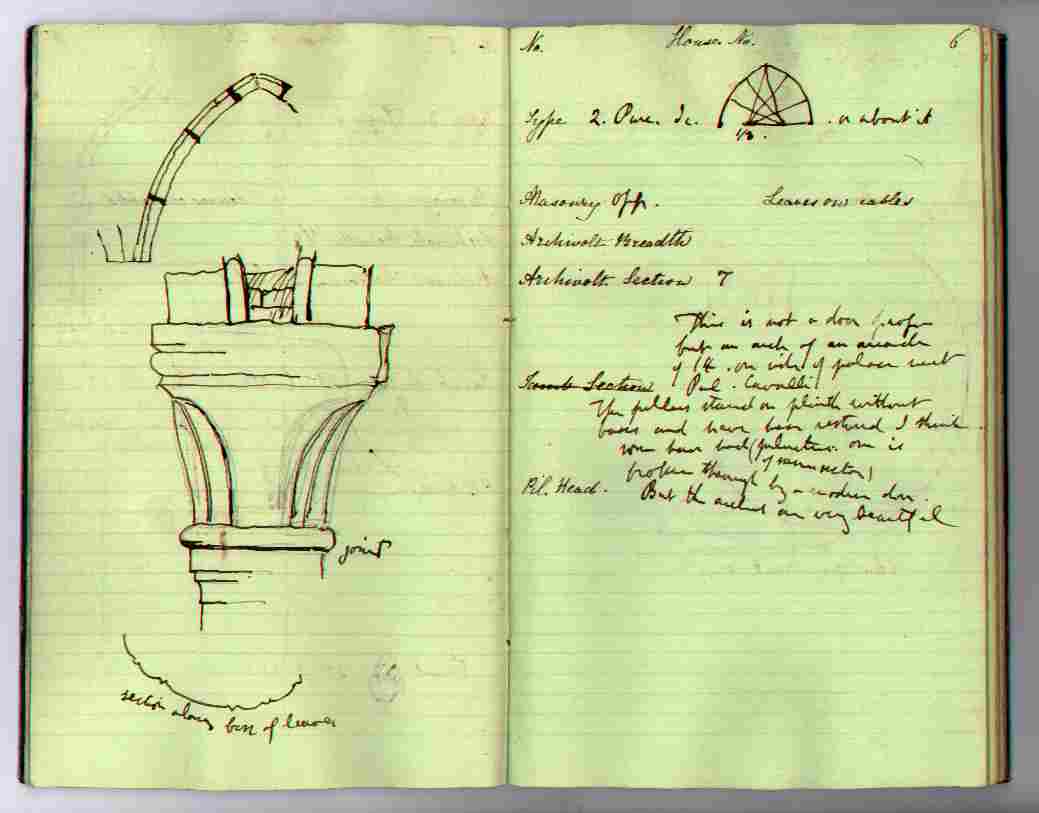 joint
section along base of leaves
No. House. No. 6
Type 2. Pure. &c. 1/3. . or about it
Masonry Opp. Leaves on cables
Archivolt Breadth
Archivolt. Section 7
This is not a door proper
but an arch of an arcade
of 14. on side of palace next
Jamb Section Pal. Cavalli
The pillars stand on plinth without
bases and have been restored I think
have had one is
broken through by a modern door.
Pil. Head. But the arches are very beautiful